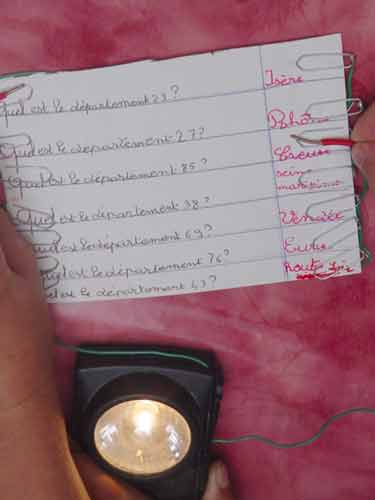 Quel est le département 23?
Isère
Quel est le département 27?
Rhône
Quel est le département 85?
Creuse
Quel est le département 38?
seine
maritime
Quel est le département 69?
Vendée
Quel est le département 76?
Eure
Quel est le département 43?
haute